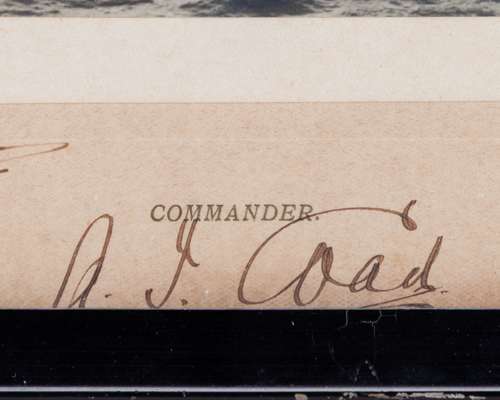 COMMANDER.
A. J. Coad